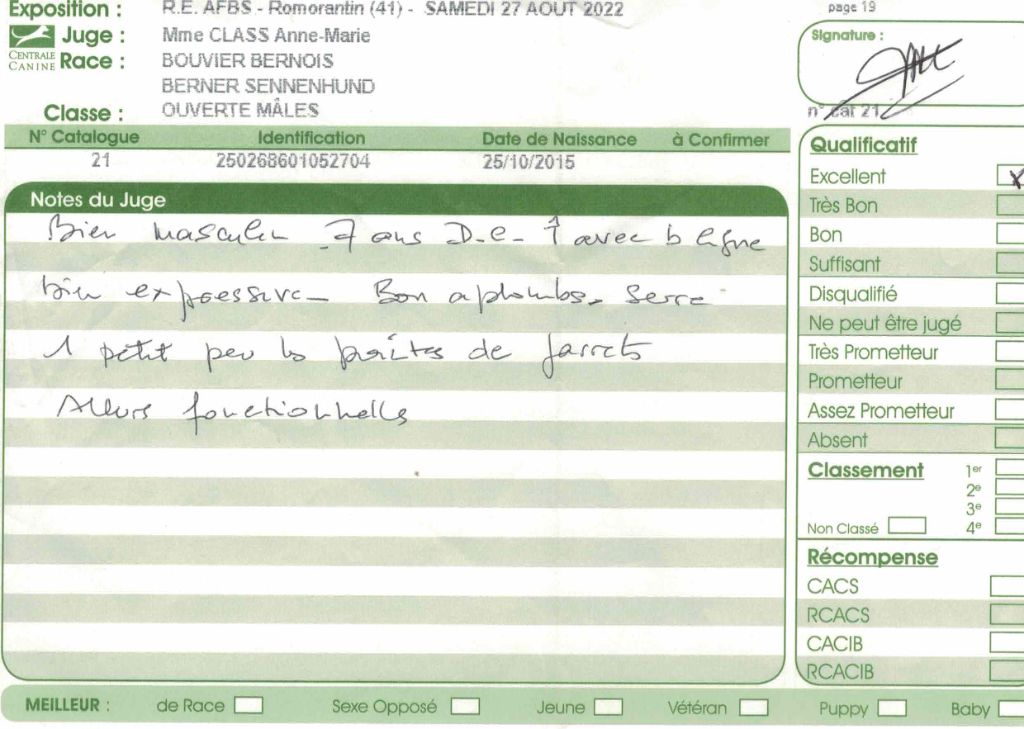 Exposition : R.E. AFBS - Romorantin (41) - SAMEDI 27 AOUT 2022
page 19
CENTRALE CANINE
Juge : Mme CLASS Anne-Marie
Race : BOUVIER BERNOIS
BERNER SENNENHUND
Classe : OUVERTE MÂLES
Signature :
n° cat 21
N° Catalogue Identification Date de Naissance à Confirmer
21 250268601052704 25/10/2015
Notes du Juge
Bien masculin 7 ans D.C. 1 avec b ligne
bien expressive Bon aplombs. Serre
1 petit peu ls pointes de jarrets
Allure fonctionnelle
Qualificatif
Excellent X
Très Bon
Bon
Suffisant
Disqualifié
Ne peut être jugé
Très Prometteur
Prometteur
Assez Prometteur
Absent
Classement 1er
2e
3e
Non Classé 4e
Récompense
CACS
RCACS
CACIB
RCACIB
MEILLEUR : de Race Sexe Opposé Jeune Vétéran Puppy Baby